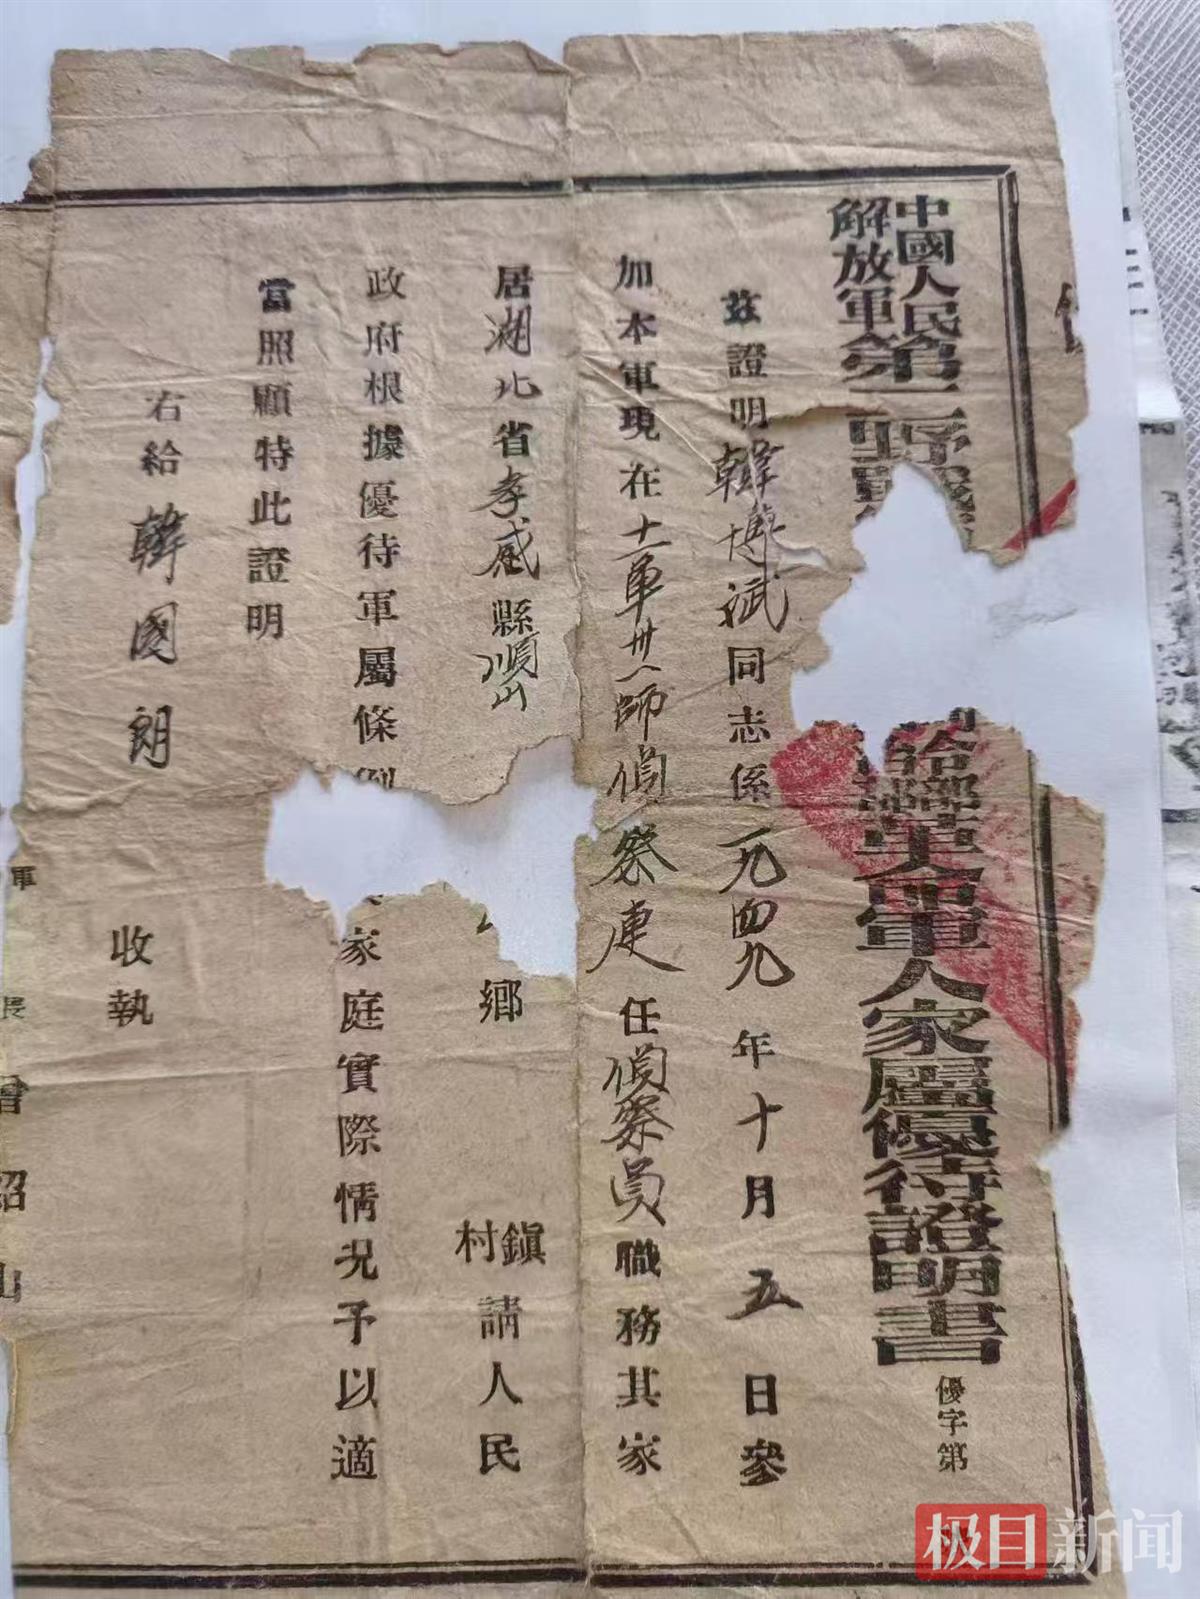 中國人民
解放軍
第二野戰
給部革命軍人家屬優待證明書
優字第
茲證明韓博斌同志係一九四九年十月五日參
加本軍現在十一軍卅一師偵察連任偵察員職務其家
居湖北省孝感縣順山鄉鎮村請人民
政府根據優待軍屬條例家庭實際情況予以適
當照顧特此證明
右給韓國朗收執
軍長曾紹山
极目新闻